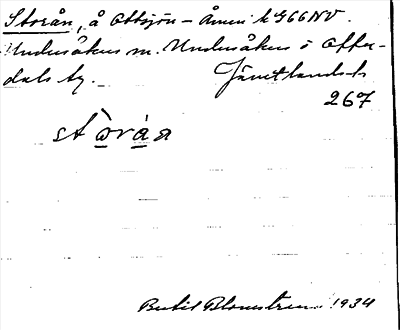 Storån, å Ottsjön – Ånn: k G66NV.
Undersåkers m. Undersåkers o Offer-
dals tg. Jämtlands l.
267
stòråa
Bertil Blomstrem 1934